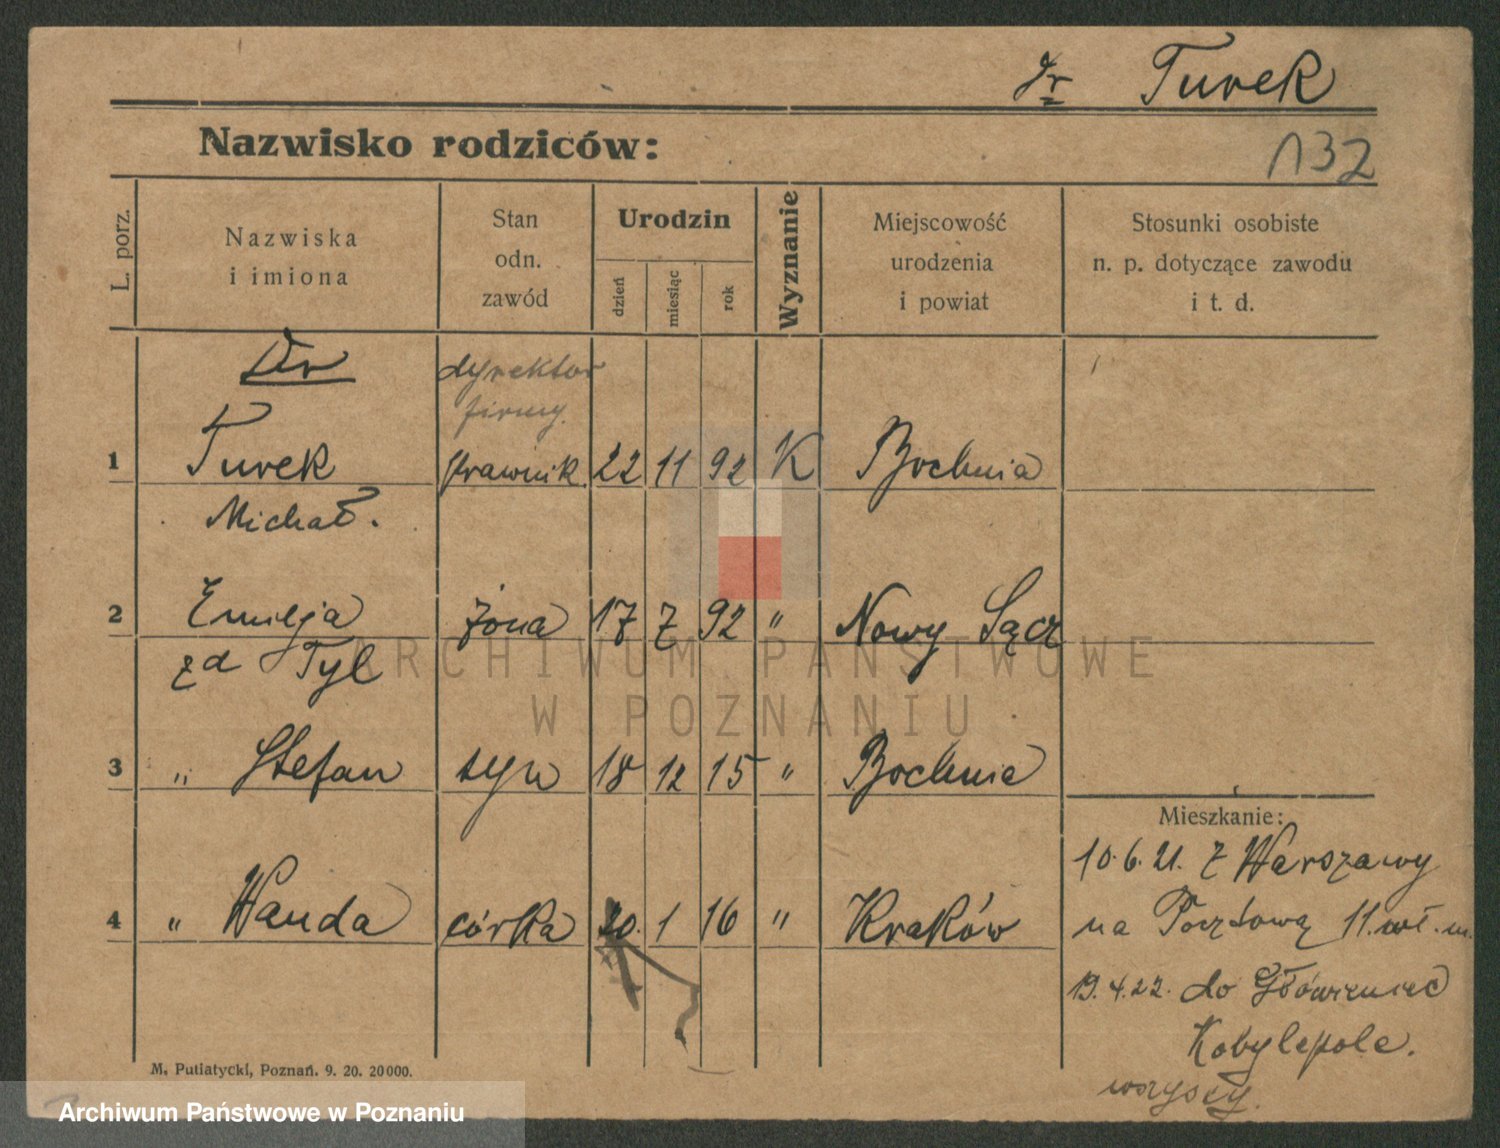 Dr Turek
Nazwisko rodziców:
132
L. porz.
Nazwiska
i imiona
Stan
odn.
zawód
Urodzin
dzień
miesiąc
rok
Wyznanie
Miejscowość
urodzenia
i powiat
Stosunki osobiste
n. p. dotyczące zawodu
i t. d.
Dr
dyrektor
firmy.
1 Turek prawnik 22 11 92 K Bochnia
Michał.
2 Emilja żona 17 7 92 " Nowy Sącz
zd Tyl
ARCHIWUM PAŃSTWOWE
W POZNANIU
3 " Stefan syn 18 12 15 " Bochnia
4 " Wanda córka 20. 1 16 " Kraków
Mieszkanie:
10.6.21. z Warszawy
na Pocztową 11. wł. m.
19.4.22. do Główieniec
Kobylepole.
wszyscy.
M. Putiatycki, Poznań. 9. 20. 20000.
Archiwum Państwowe w Poznaniu